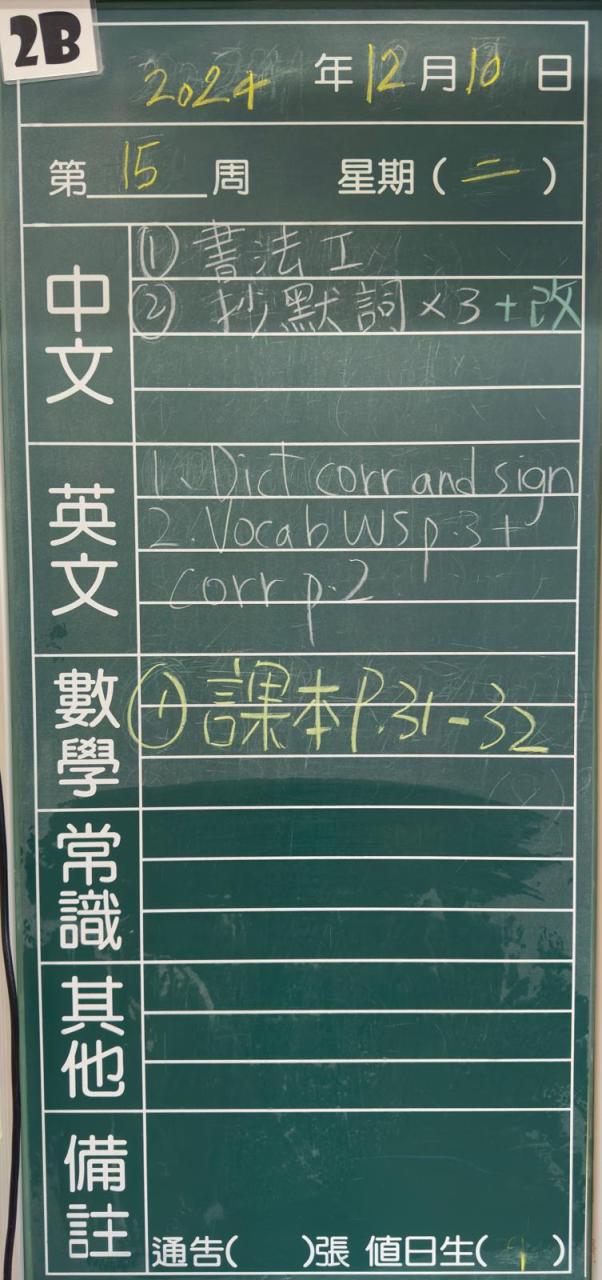 2B
2024 年 12 月 10 日
第 15 周 星期(二)
中文
① 書法工
② 抄默詞×3+改
英文
1. Dict corr and sign
2. Vocab WS p.3 +
corr p.2
數學
① 課本 P.31-32
常識
其他
備註
通告( )張 值日生( )